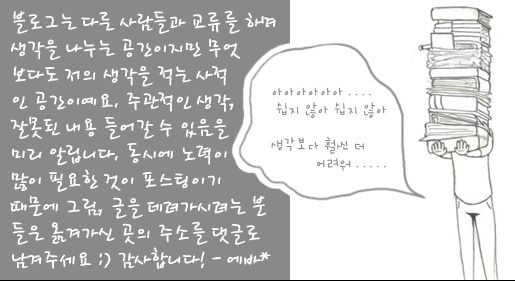 블로그는 다른 사람들과 교류를 하며
생각을 나누는 공간이지만 무엇
보다도 저의 생각을 적는 사적
인 공간이예요. 주관적인 생각,
잘못된 내용 들어갈 수 있음을
미리 알립니다. 동시에 노력이
많이 필요한 것이 포스팅이기
때문에 그림, 글을 데려가시려는 분
들은 옮겨가신 곳의 주소를 댓글로
남겨주세요 :) 감사합니다! - 에바*
아아아아아아 ....
쉽지 않아 쉽지 않아
생각보다 훨씬 더
어려워 .....